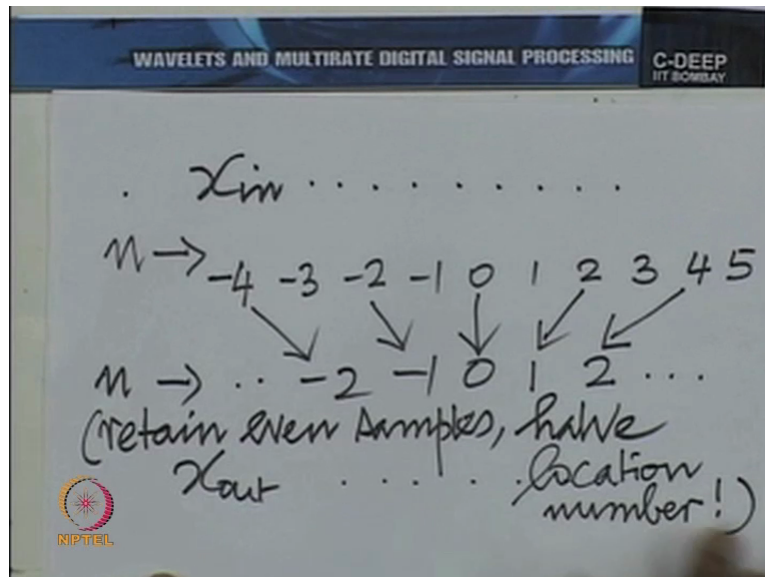 WAVELETS AND MULTIRATE DIGITAL SIGNAL PROCESSING
C-DEEP
IIT BOMBAY
. Xin . . . . . . . . . .
n → -4 -3 -2 -1 0 1 2 3 4 5
n → .. -2 -1 0 1 2 ...
(retain even samples, halve
Xout . . . . . . location
number!)
NPTEL